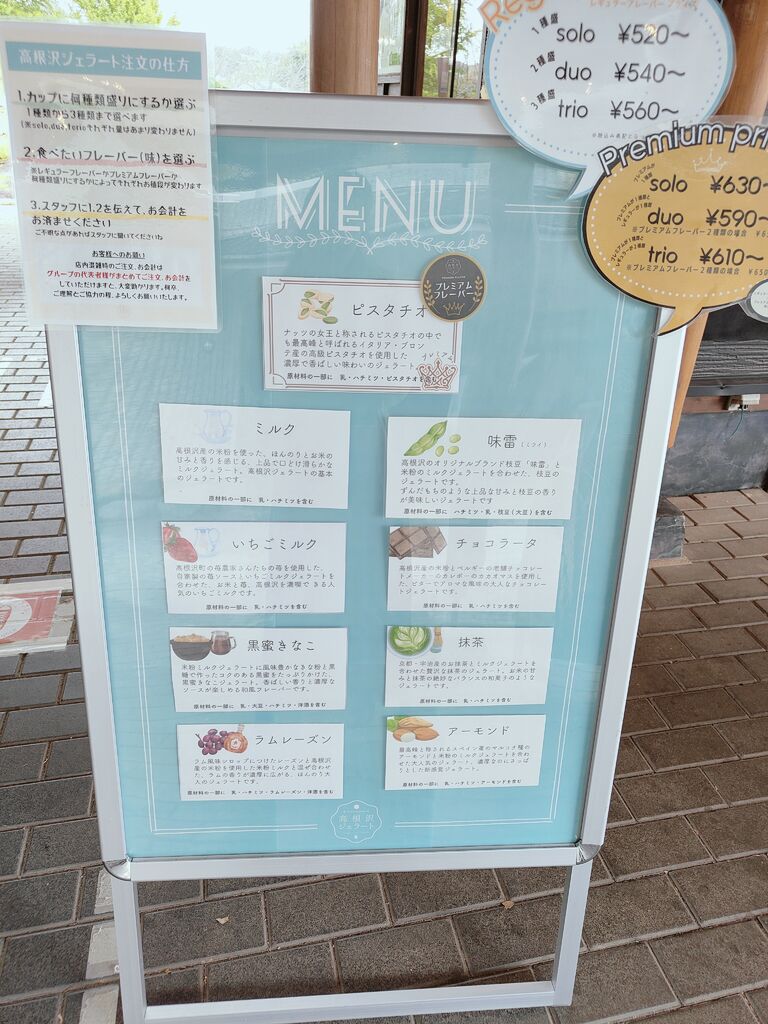 高根沢ジェラート注文の仕方
1.カップに何種類盛りにするか選ぶ
1種類から3種類まで選べます
(※solo,duo,trioそれぞれ量はあまり変わりません)
2.食べたいフレーバー(味)を選ぶ
※レギュラーフレーバーかプレミアムフレーバーか
何種類盛りにするかによってそれぞれお値段が変わります
3.スタッフに1.2を伝えて、お会計を
お済ませください
ご不明な点があればスタッフに聞いてくださいね
お客様へのお願い
店内混雑時のご注文、お会計は
グループの代表者様がまとめてご注文、お会計を
していただけますと、大変助かります。何卒、
ご理解とご協力の程、よろしくお願いいたします。
1種盛 solo ¥520～
2種盛 duo ¥540～
3種盛 trio ¥560～
Premium pri
solo ¥630～
duo ¥590～
※プレミアムフレーバー2種類の場合
trio ¥610～
※プレミアムフレーバー2種類の場合 ¥650
MENU
プレミアム
フレーバー
ピスタチオ
ナッツの女王と称されるピスタチオの中で
も最高峰と呼ばれるイタリア・ブロン
テ産の高級ピスタチオを使用した
濃厚で香ばしい味わいのジェラート
プレミアム
原材料の一部に 乳・ハチミツ・ピスタチオを含む
ミルク
高根沢産の米粉を使った、ほんのりとお米の
甘みと香りを感じる、上品で口どけ滑らかな
ミルクジェラート。高根沢ジェラートの基本
のジェラートです
原材料の一部に 乳・ハチミツを含む
味雷(ミライ)
高根沢のオリジナルブランド枝豆「味雷」と
米粉のミルクジェラートを合わせた、枝豆の
ジェラートです。
ずんだもちのような上品な甘みと枝豆の香り
が美味しいジェラートです
原材料の一部に ハチミツ・乳・枝豆(大豆)を含む
いちごミルク
高根沢町の苺農家さんたちの苺を使用した、
自家製の苺ソースといちごミルクジェラートを
合わせた、お米と苺、高根沢を満喫できる人
気のいちごミルクです。
原材料の一部に 乳・ハチミツを含む
チョコラータ
高根沢産の米粉とベルギーの老舗チョコレ
ートメーカーのカレボーのカカオマスを使用し
た、ビターでアロマな風味の大人なチョコレー
トジェラートです。
原材料の一部に 乳・ハチミツを含む
黒蜜きなこ
米粉ミルクジェラートに風味豊かなきな粉と黒
糖で作ったコクのある黒蜜をたっぷりかけた、
黒蜜きなこジェラート。香ばしい香りと濃厚な
ソースが楽しめる和風フレーバーです。
原材料の一部に 乳・大豆・ハチミツ・洋酒を含む
抹茶
京都・宇治産のお抹茶とミルクジェラートを
合わせた贅沢な抹茶のジェラート。お米の甘
みと抹茶の絶妙なバランスの和菓子のような
ジェラートです。
原材料の一部に 乳・ハチミツを含む
ラムレーズン
ラム風味シロップにつけたレーズンと高根沢
産の米粉を使用した米粉ミルクと混ぜ合わせ
た、ラムの香りが濃厚に広がる、ほんのり大
人のジェラートです。
原材料の一部に 乳・ハチミツ・ラムレーズン・洋酒を含む
アーモンド
最高峰と称されるスペイン産のマルコナ種の
アーモンドと米粉のミルクジェラートを合わ
せた大人気のジェラート。濃厚なのにさっぱ
りとした新感覚ジェラート。
原材料の一部に 乳・ハチミツ・アーモンドを含む
高根沢
ジェラート